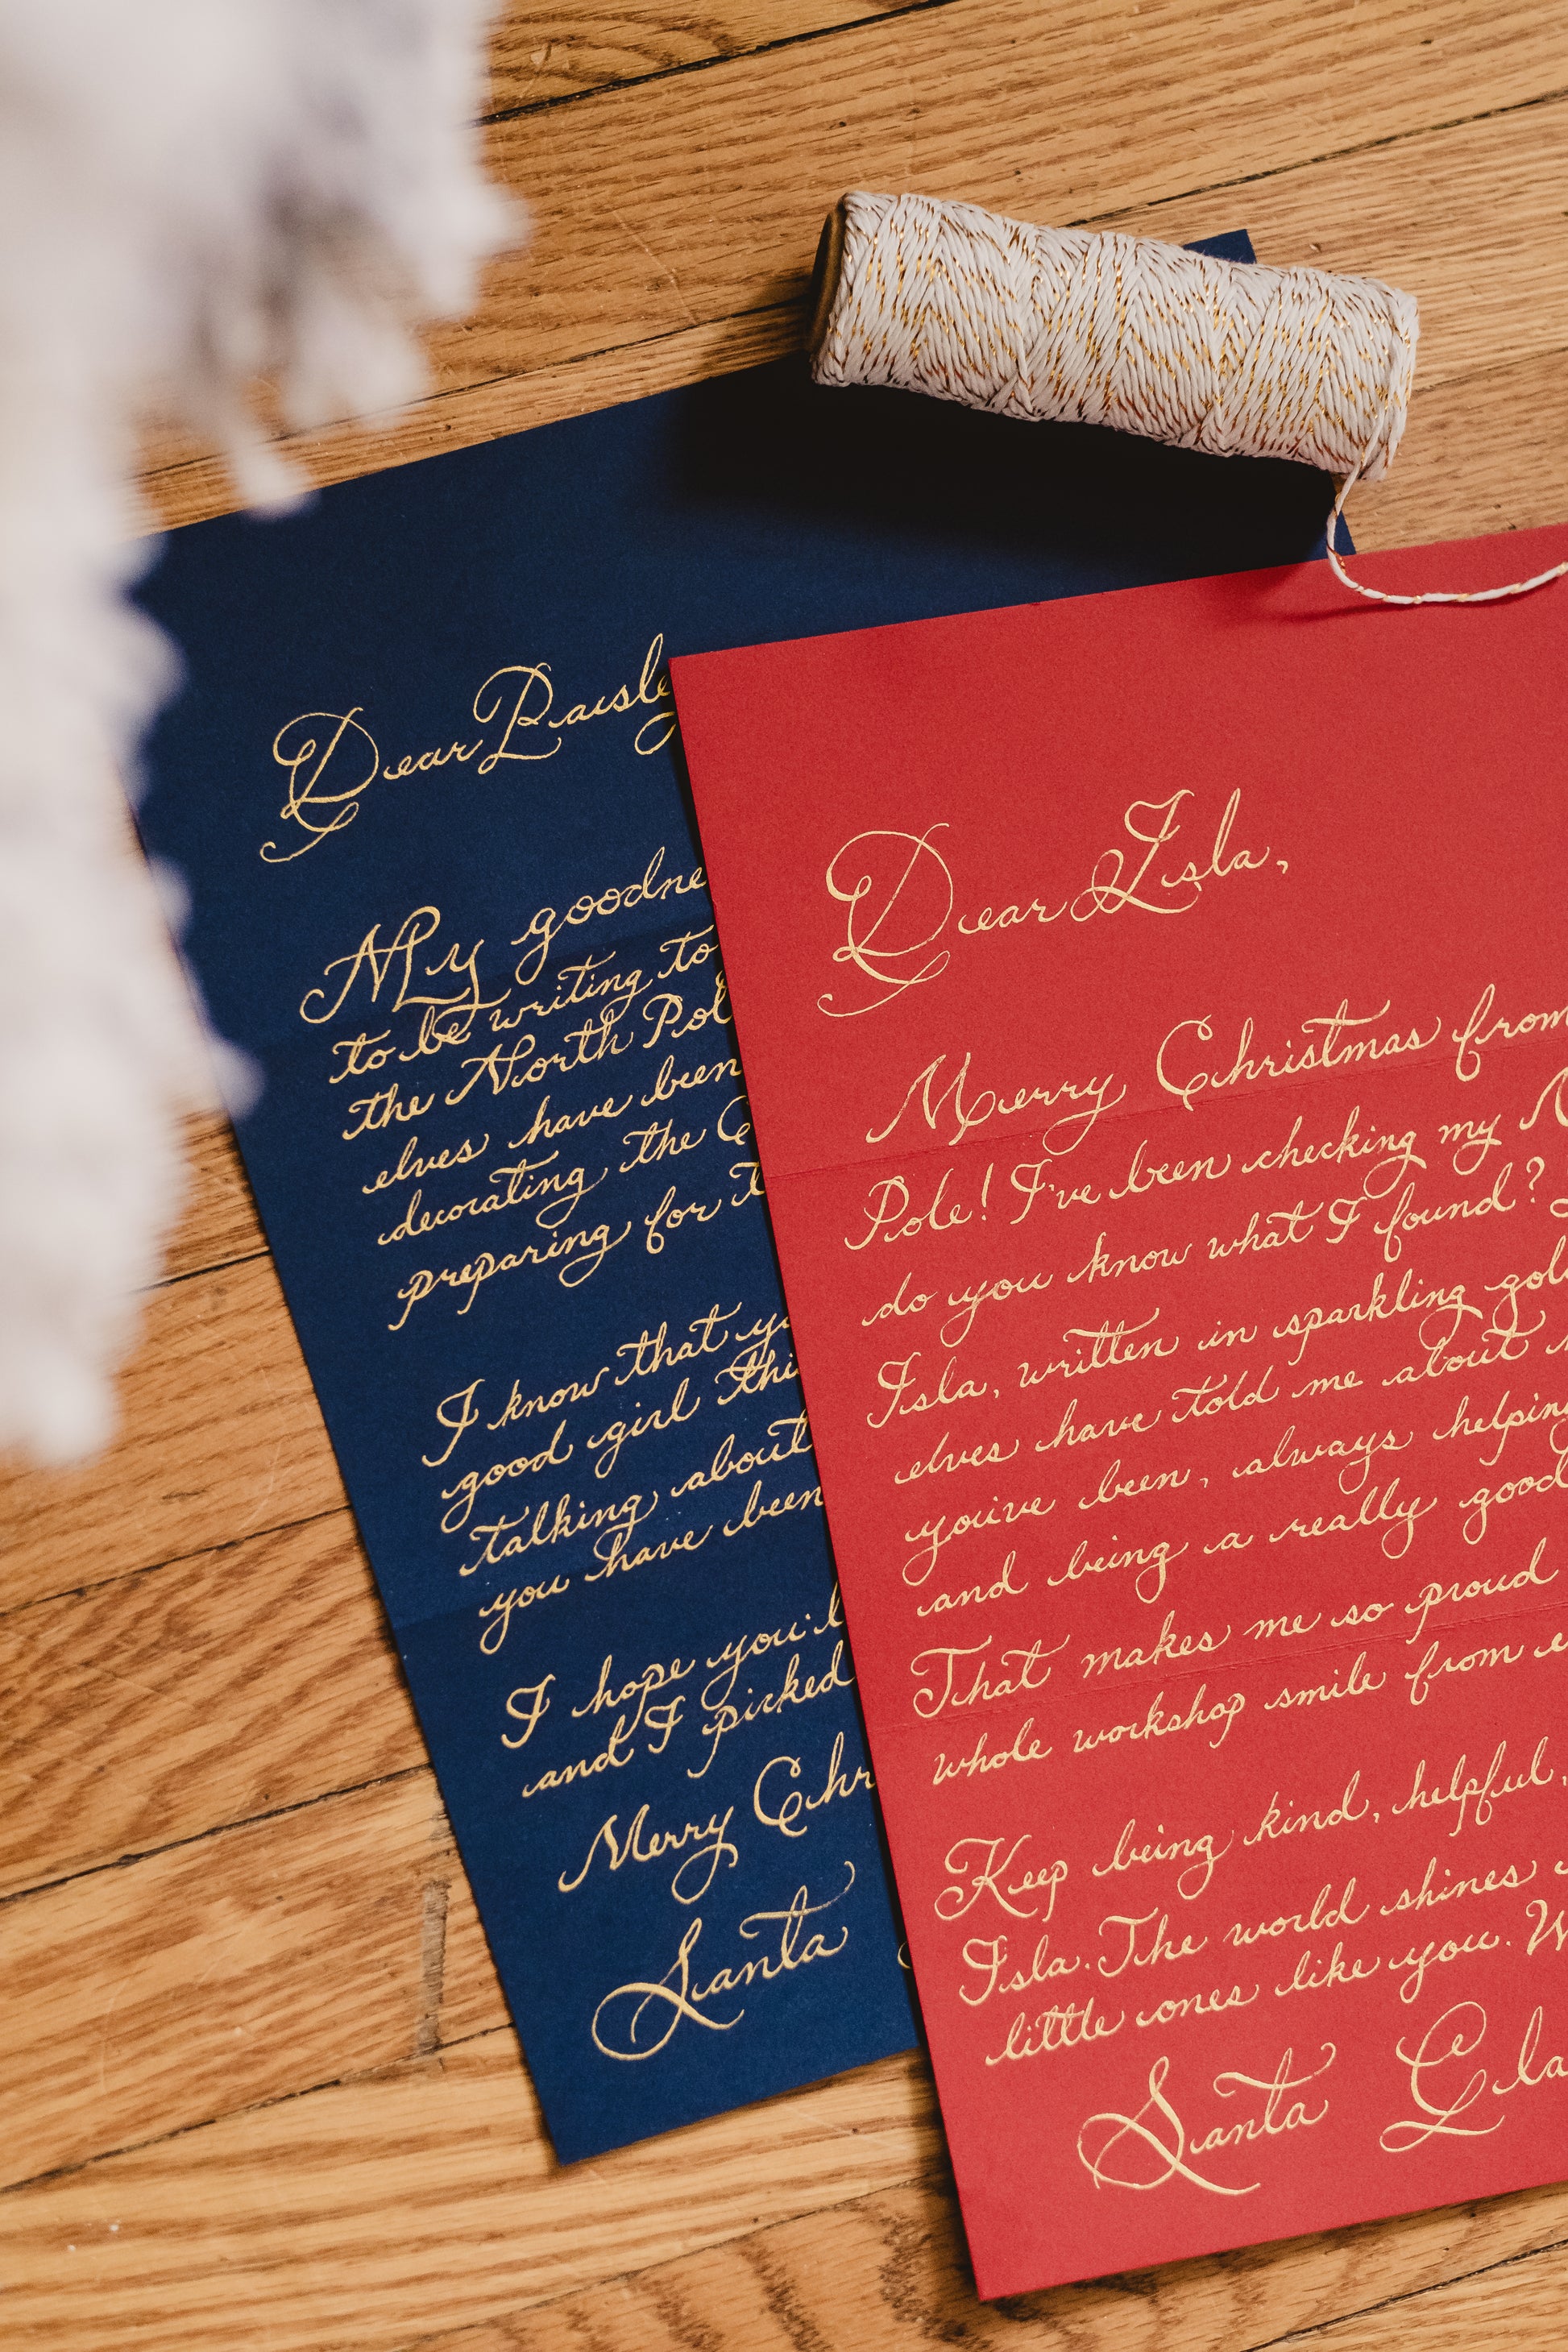 Dear Paisley
My goodne
to be writing to
the North Pol
elves have been
decorating the C
preparing for t
I know that yo
good girl this
talking about
you have been
I hope you'l
and I picked
Merry Chr
Santa
Dear Isla,
Merry Christmas from
Pole! I've been checking my N
do you know what I found?
Isla, written in sparkling gol
elves have told me about
you've been, always helping
and being a really good
That makes me so proud
whole workshop smile from e
Keep being kind, helpful,
Isla. The world shines
little ones like you. W
Santa Cla